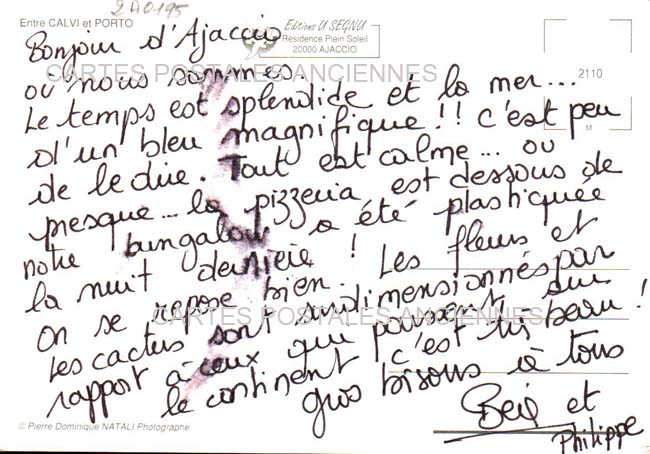 Entre CALVI et PORTO
2A0195
Editions U SEGNU
Résidence Plein Soleil
20000 AJACCIO
2110
M
Bonjour d'Ajaccio
où nous sommes
CARTES POSTALES ANCIENNES
Le temps est splendide et la mer...
d'un bleu magnifique!! c'est peu
de le dire. Tout est calme... ou
presque... la pizzeria est dessous de
notre bungalow a été plastiquée
la nuit dernière ! Les fleurs et
On se repose bien.
Les cactus sont surdimensionnés par
CARTES POSTALES ANCIENNES
rapport à ceux qui poussent sur
le continent c'est très beau !
gros bisous à tous
et
Philippe
© Pierre Dominique NATALI Photographe